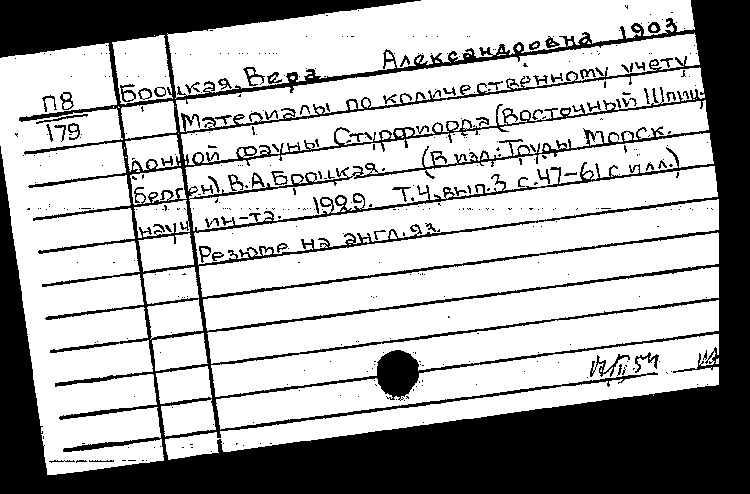 П8
179
Броцкая, Вера Александровна 1903
Материалы по количественному учету
донной фауны Стурфиорда (Восточный Шпиц-
берген), В.А. Броцкая. (В изд.: Труды Морск.
науч. ин-та. 1929. Т.4, вып.3 с.47-61 с илл.)
Резюме на англ. яз.